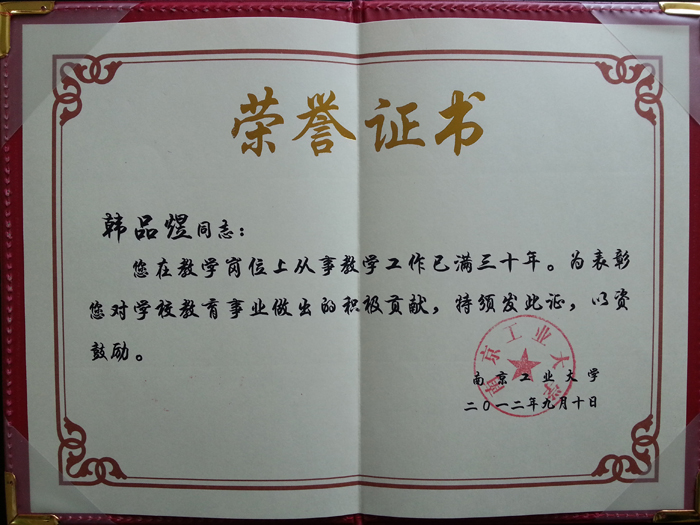 荣誉证书
韩品煜同志：
您在教学岗位上从事教学工作已满三十年。为表彰
您对学校教育事业做出的积极贡献，特颁发此证，以资
鼓励。
南京工业大学
南京工业大学
二〇一二年九月十日